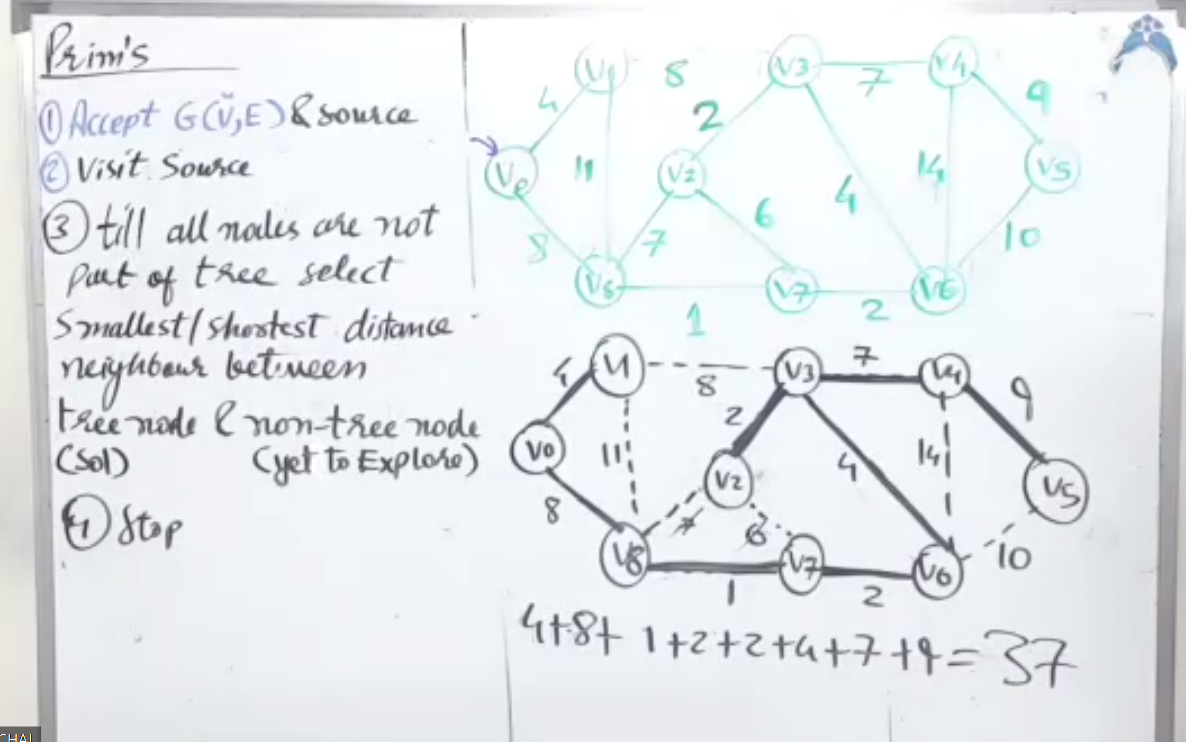 Prim's
① Accept G(V,E) & source
② Visit Source
③ till all nodes are not
part of tree select
Smallest/shortest distance
neighbour between
tree node & non-tree node
(Sol) (yet to Explore)
④ Stop
V1 8 V3 7 V4
4 2 9
V0 11 V2 4 14 V5
8 7 6 10
V8 1 V7 2 V6
V1 8 V3 7 V4
4 2 9
V0 11 V2 4 14 V5
8 7 6 10
V8 1 V7 2 V6
4+8+1+2+2+4+7+9=37
CHAL